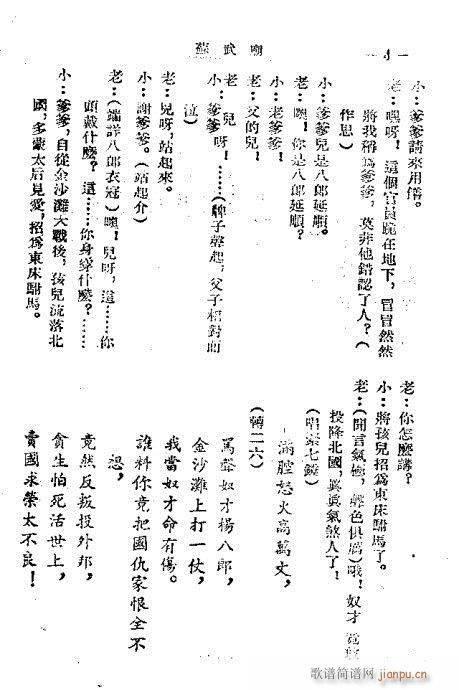 蘇武廟
—4—
小：爹爹請來用膳。
老：嘿呀！這個官員跪在地下，冒冒然然
將我稱爲爹爹，莫非他錯認了人？（
作思）
小：爹爹兒是八郎延順。
老：噢！你是八郎延順？
小：老爹爹！
老：父的兒！
老：兒呀！
小：爹爹呀！……（牌子聲起，父子相對而
泣）
老：兒呀，站起來。
小：謝爹爹。（站起介）
老：（端詳八郎衣冠）噢！兒呀，這……你
頭戴什麼？這……你身穿什麼？……
小：爹爹，自從金沙灘大戰後，孩兒流落北
國，多蒙太后見愛，招爲東床駙馬。
老：你怎麼講？
小：將孩兒招爲東床駙馬了。
老：（聞言氣極，聲色俱厲）哦！奴才 竟敢
投降北國，眞眞氣煞人了！
（唱塞七鑼）
滿腔怒火高萬丈，
（轉二六）
罵聲奴才楊八郎，
金沙灘上打一仗，
我當奴才命有傷。
誰料你竟把國仇家恨全不
想，
竟然反叛投外邦，
貪生怕死活世上，
賣國求榮太不良！
歌谱简谱网
jianpu.cn